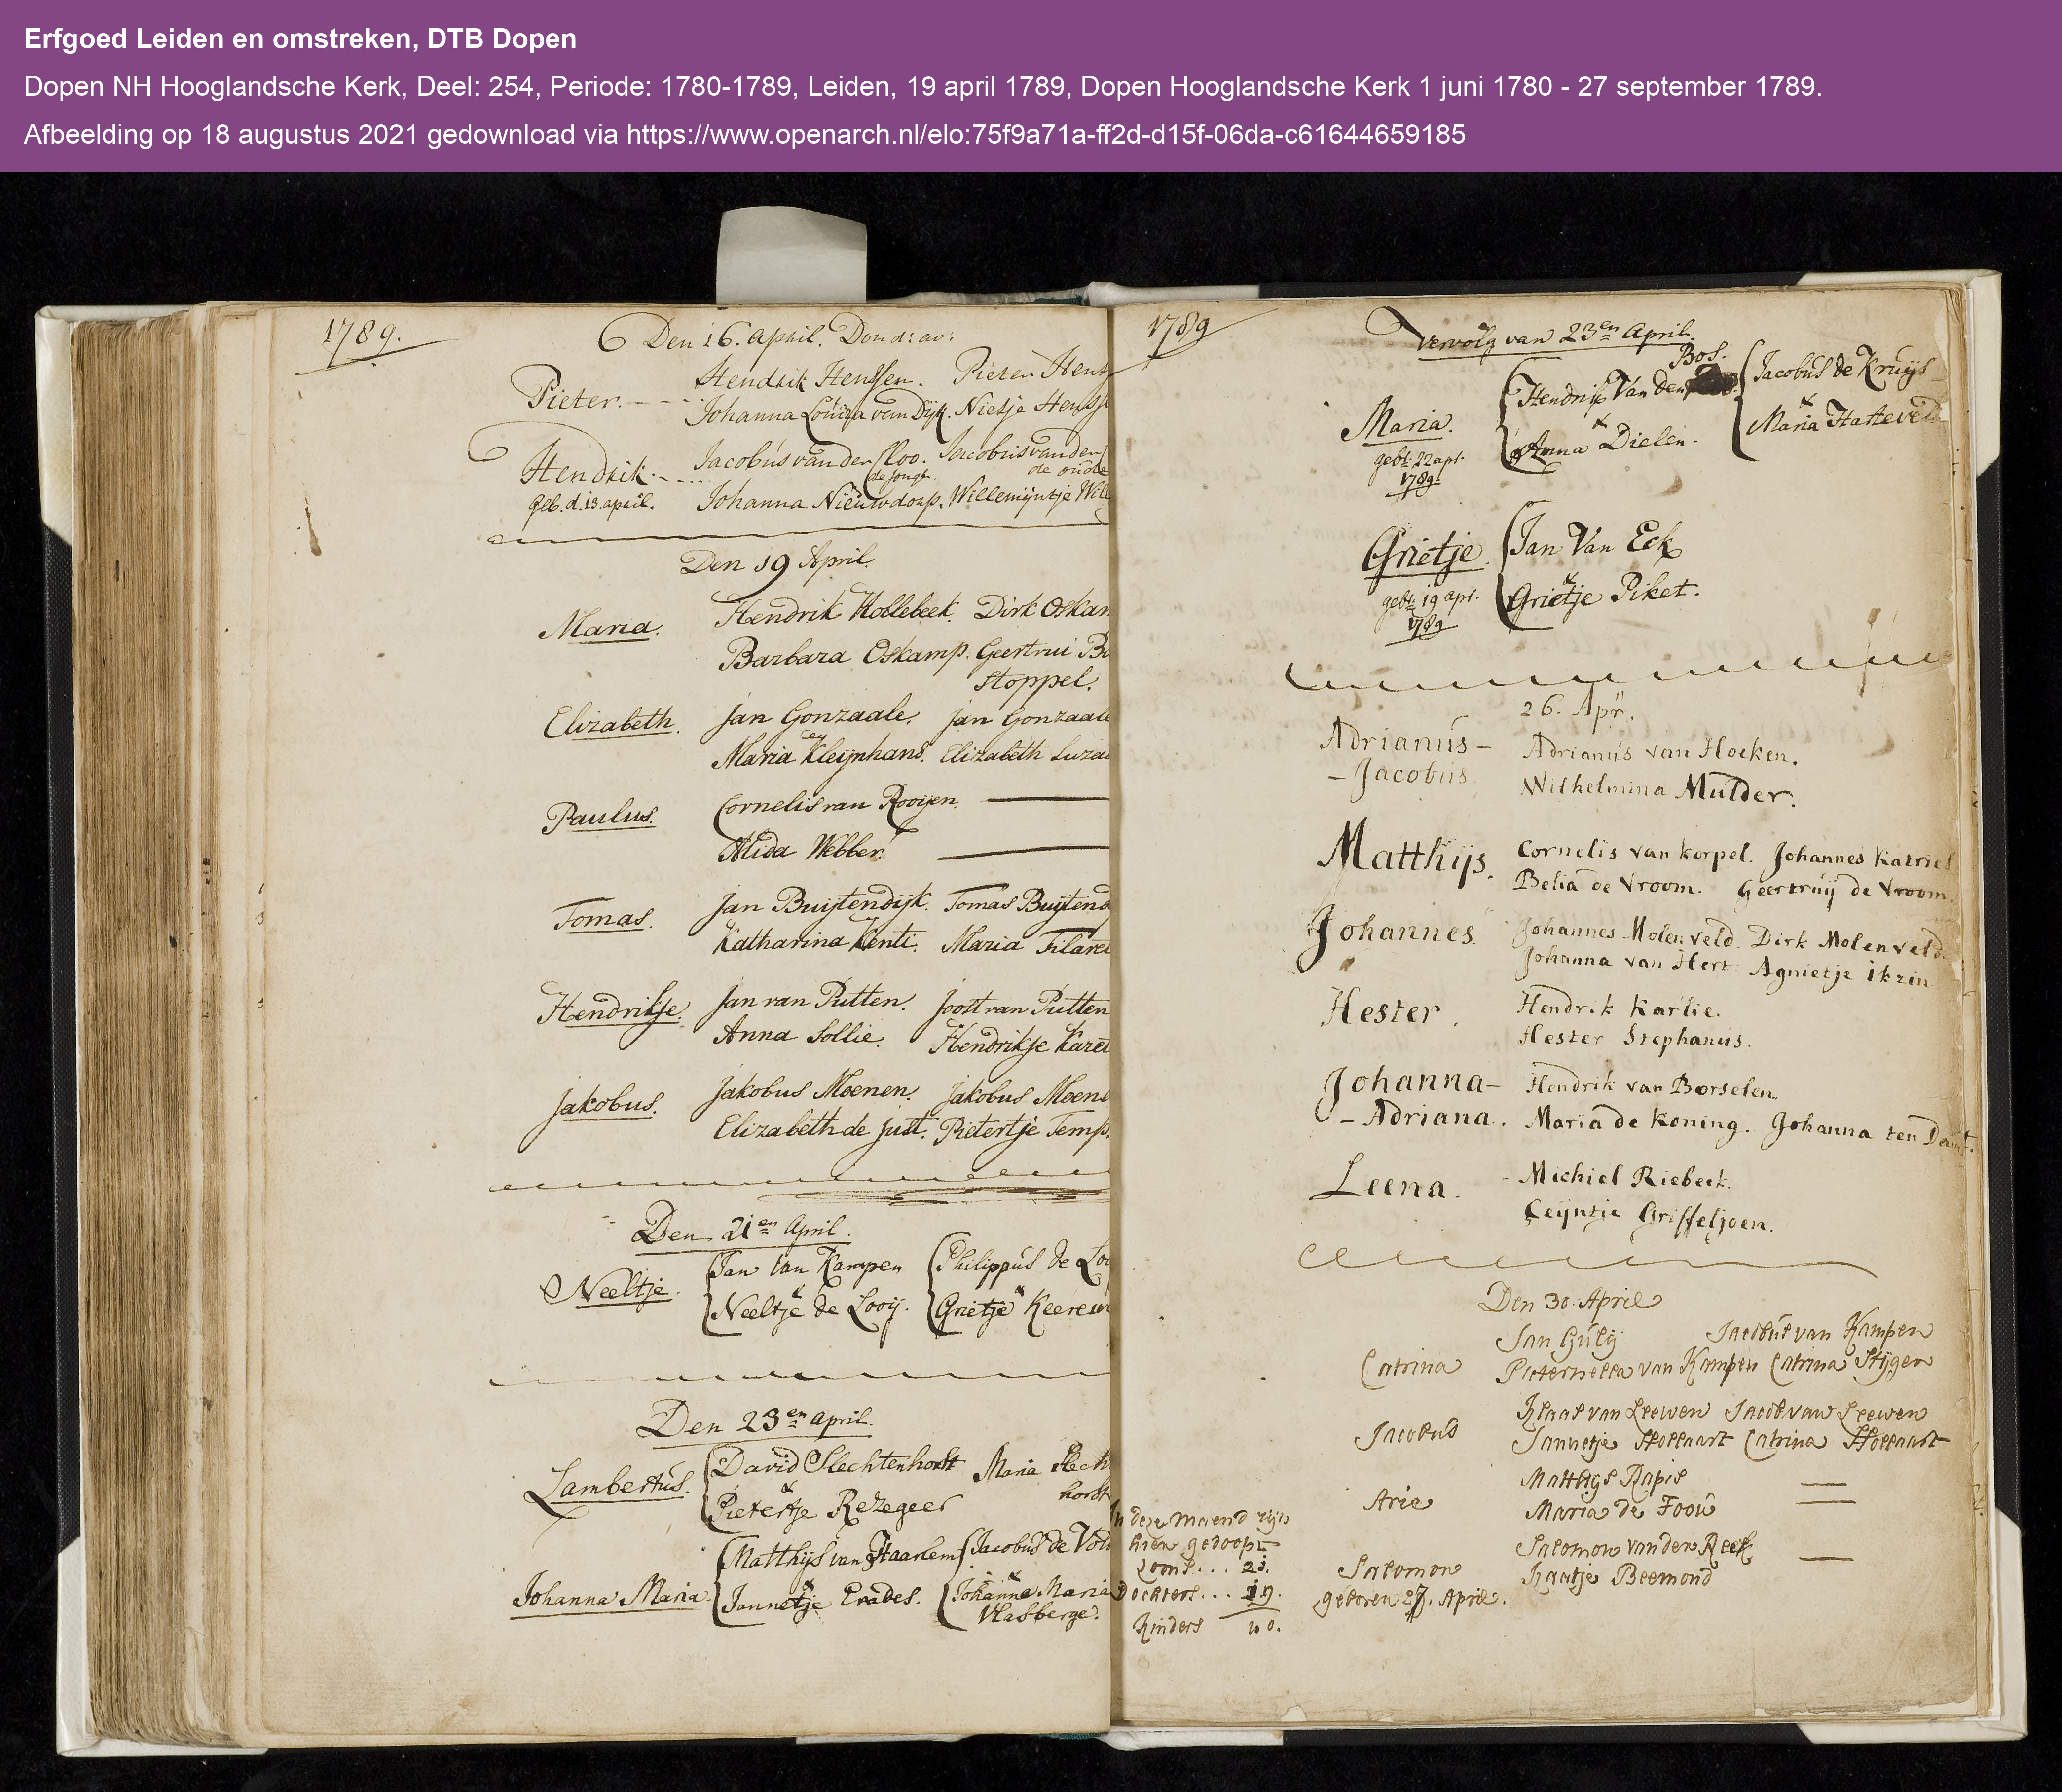 Erfgoed Leiden en omstreken, DTB Dopen
Dopen NH Hooglandsche Kerk, Deel: 254, Periode: 1780-1789, Leiden, 19 april 1789, Dopen Hooglandsche Kerk 1 juni 1780 - 27 september 1789.
Afbeelding op 18 augustus 2021 gedownload via https://www.openarch.nl/elo:75f9a71a-ff2d-d15f-06da-c61644659185
1789.
Den 16. April. Dond: av:
Hendrik Henssen. Pieter Hens
Pieter.
Johanna Louiza van Dijk. Nietje Henss
Jacobus van der Cloo. Jacobus vander
de jonge. de oude
Hendrik.
geb. d. 13. april.
Johanna Nieuwdorp. Willemijntje Will
Den 19 April.
Maria. Hendrik Kollebeek. Dirk Oskam
Barbara Oskamp. Geertrui
Stoppel.
Elizabeth. Jan Gonzaale. Jan Gonzaale
Maria Kleijnhans. Elizabeth Luza
Paulus. Cornelis van Rooijen.
Alida Webber.
Tomas. Jan Buijtendijk. Tomas Buijtend
Katharina Kenti. Maria Filare
Hendrikje. Jan van Putten. Joost van Putten
Anna Sollie. Hendrikje Karel
Jakobus. Jakobus Moenen. Jakobus Moene
Elizabeth de Just. Pietertje Temp.
Den 21en April.
Neeltje. Jan van Kampen Philippus de Loo
x x
Neeltje de Looij. Grietje Keerew
Den 23en april.
Lambertus. David Slechtenhorst Maria Slech
x horst
Pietertje Rezegeer
Matthijs van Haarlem Jacobus de Vo
x x
Johanna Maria. Jannetje Erades. Johanna Maria
Vlasberge.
1789
Vervolg van 23en April.
Bos.
Hendrik Van den Jacobus de Kruijs
x x
Maria. Anna Dielen. Maria Hatteveld
geb: 22 apr.
1789
Grietje. Jan Van Eck
x
geb: 19 apr. Grietje Piket.
1789
26. Apr.
Adrianus- Adrianus van Hoeken.
-Jacobus. Wilhelmina Mulder.
Matthijs. Cornelis van Korpel. Johannes Katriel
Belia de Vroom. Geertruij de Vroom.
Johannes. Johannes Molenveld. Dirk Molenveld.
Johanna van Hert. Agnietje Ikzin
Hester. Hendrik Karlie.
Hester Stephanus.
Johanna- Hendrik van Borselen.
-Adriana. Maria de Koning. Johanna ten
Leena. Michiel Riebeek.
Ceyntje Griffeljoen.
Den 30. April
Jan Gulij Jacobus van Kampen
Catrina Pieternella van Kampen Catrina Stijger
Klaas van Leewen Jacob van Leewen
Jacobus Jannetje Hollaart Catrina Hollaart
Matthijs Rapis
Arie Maria de Foou
Salomon van der Reek
Salomon Kaatje Beemond
geboren 27. April.
In deze maend zijn
hier gedoopt
Zoons... 21.
Dochters... 19.
Kinders 40.